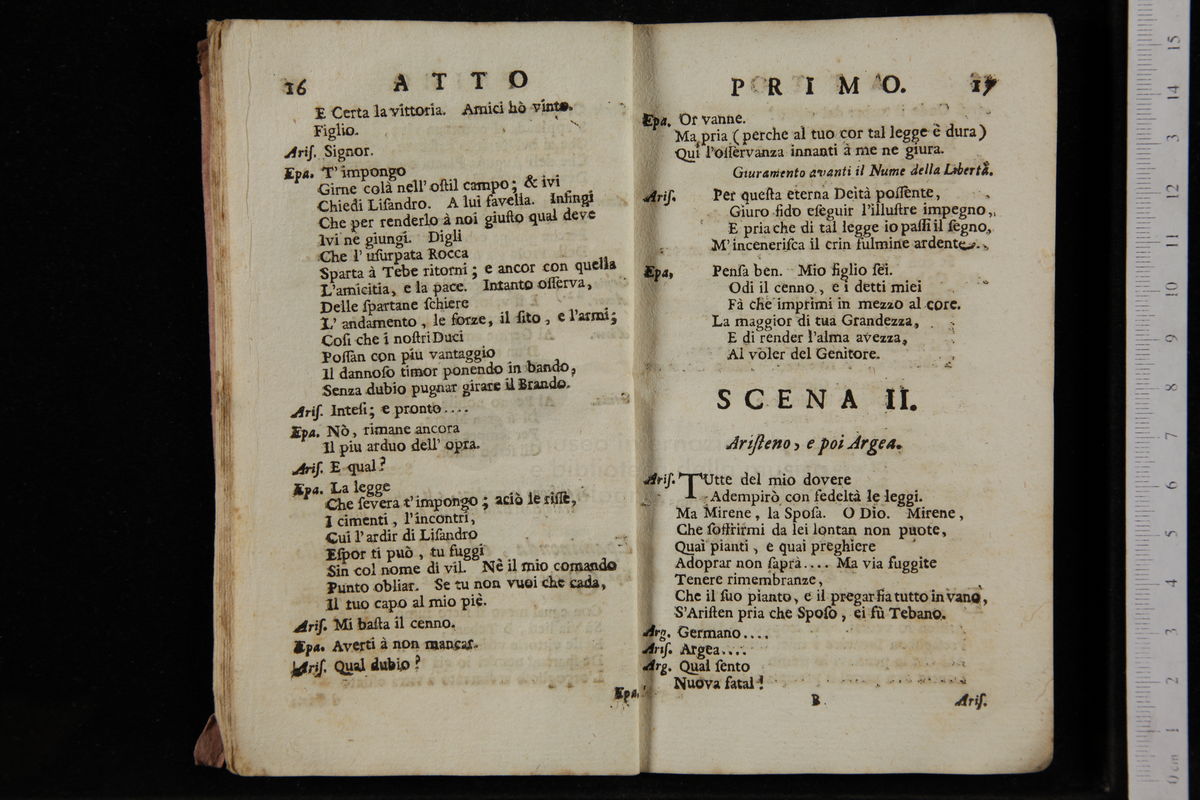 16 ATTO
E Certa la vittoria. Amici hò vinto.
Figlio.
Ariſ. Signor.
Epa. T' impongo
Girne colà nell' oſtil campo; & ivi
Chiedi Liſandro. A lui favella. Infingi
Che per renderlo à noi giuſto qual deve
Ivi ne giungi. Digli
Che l' uſurpata Rocca
Sparta à Tebe ritorni; e ancor con quella
L'amicitia, e la pace. Intanto oſſerva,
Delle ſpartane ſchiere
L' andamento, le forze, il ſito, e l'armi;
Coſi che i noſtri Duci
Poſſan con piu vantaggio
Il dannoſo timor ponendo in bando,
Senza dubio pugnar girare il Brando.
Ariſ. Inteſi; e pronto....
Epa. Nò, rimane ancora
Il piu arduo dell' opra.
Ariſ. E qual?
Epa. La legge
Che ſevera t'impongo; aciò le riſſe,
I cimenti, l'incontri,
Cui l'ardir di Liſandro
Eſpor ti può, tu fuggi
Sin col nome di vil. Nè il mio comando
Punto obliar. Se tu non vuoi che cada,
Il tuo capo al mio piè.
Ariſ. Mi baſta il cenno.
Epa. Averti à non mancar.
Ariſ. Qual dubio?
Epa.
PRIMO. 17
Epa. Or vanne.
Ma pria (perche al tuo cor tal legge è dura)
Qui l'oſſervanza innanti à me ne giura.
Giuramento avanti il Nume della Libertà.
Ariſ. Per queſta eterna Deità poſſente,
Giuro fido eſeguir l'illuſtre impegno,
E pria che di tal legge io paſſi il ſegno,
M'inceneriſca il crin fulmine ardente.
Epa, Penſa ben. Mio figlio ſei.
Odi il cenno, e i detti miei
Fà che imprimi in mezzo al core.
La maggior di tua Grandezza,
E di render l'alma avezza,
Al voler del Genitore.
SCENA II.
Ariſteno, e poi Argea.
Ariſ. TUtte del mio dovere
Adempirò con fedeltà le leggi.
Ma Mirene, la Spoſa. O Dio. Mirene,
Che ſoffrirmi da lei lontan non puote,
Quai pianti, e quai preghiere
Adoprar non ſaprà.... Ma via fuggite
Tenere rimembranze,
Che il ſuo pianto, e il pregar fia tutto in vano,
S'Ariſten pria che Spoſo, ei fù Tebano.
Arg. Germano....
Ariſ. Argea....
Arg. Qual ſento
Nuova fatal!
B Ariſ.